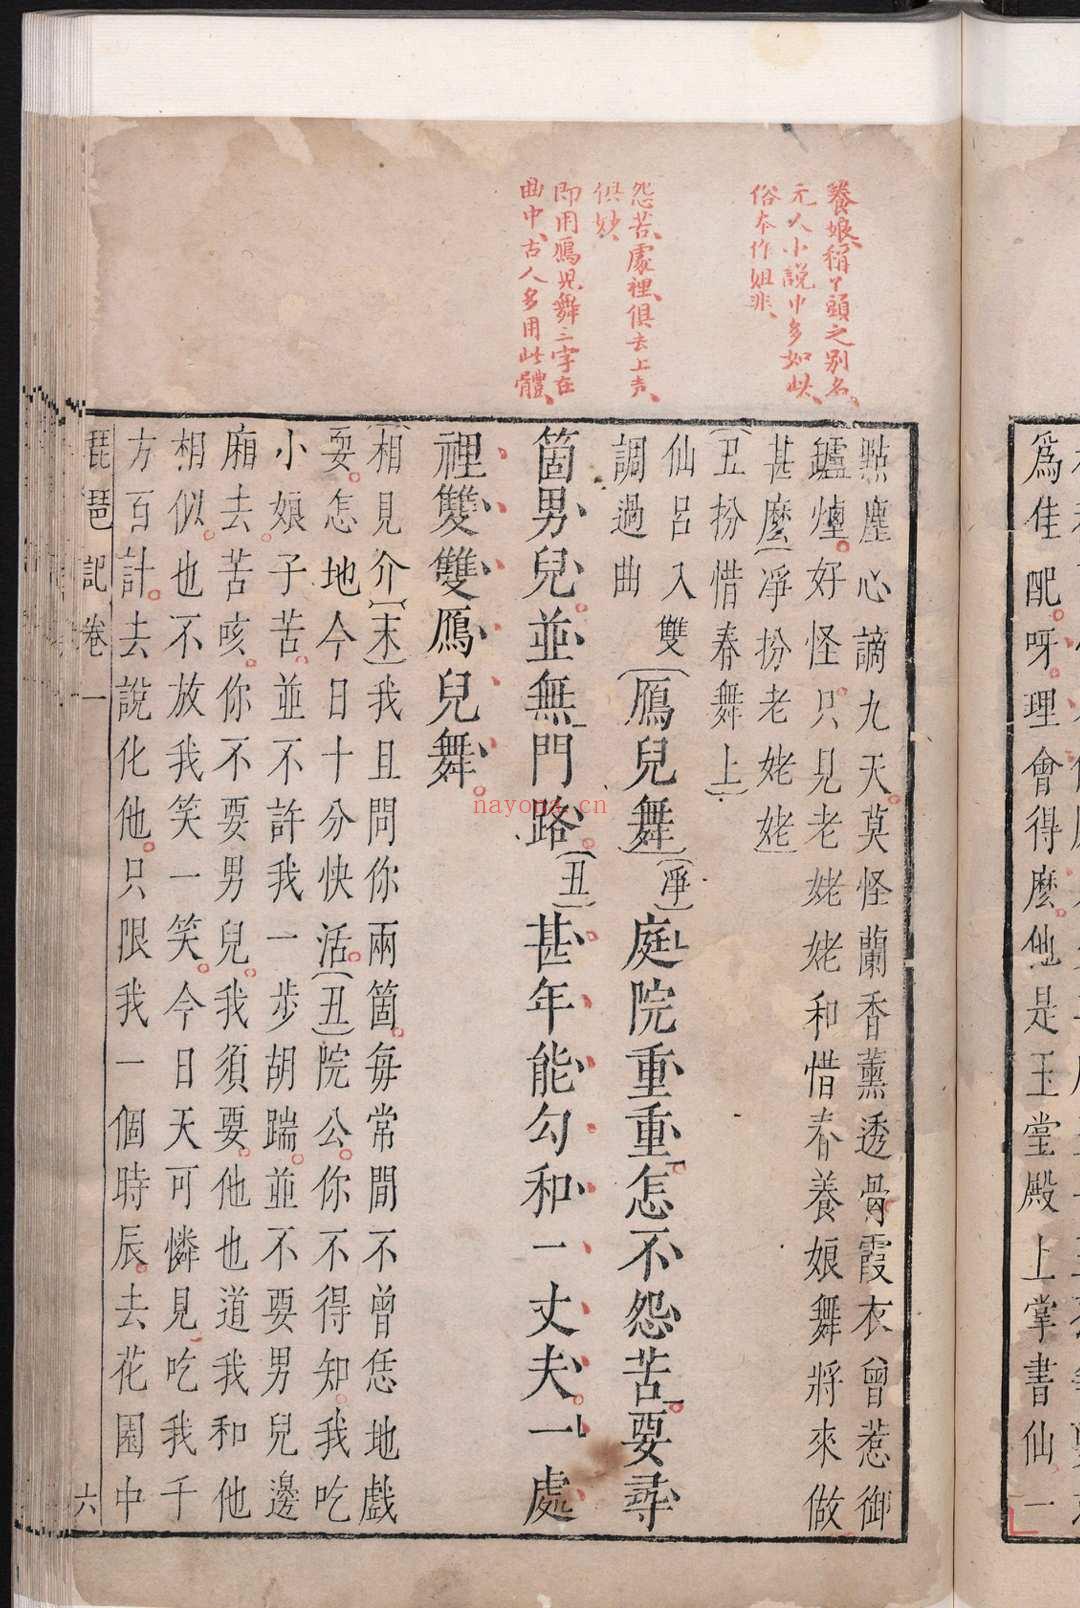 養娘、稱丫頭之別名、
元人小說中多如此、
俗本作姐非、
怨苦、處裡、俱去上声、
俱妙、
即用鴈兒舞三字在
曲中、古人多用此體、
爲佳配呀理會得麽他是玉堂殿上掌書仙一
點塵心謫九天莫怪蘭香薰透骨霞衣曾惹御
鑪煙好怪只見老姥姥和惜春養娘舞將來做
甚麽(凈扮老姥姥)
(丑扮惜春舞上)
仙呂入雙
調過曲
(鴈兒舞)(凈)庭院重重怎不怨苦要尋
箇男兒並無門路(丑)甚年能勾和一丈夫一處
裡雙雙鴈兒舞
(相見介)(末)我且問你兩箇每常間不曾恁地戲
耍怎地今日十分快活(丑)院公你不得知我吃
小娘子苦並不許我一步胡踹並不要男兒邊
廂去苦咳你不要男兒我須要他也道我和他
相似也不放我笑一笑今日天可憐見吃我千
方百計去說化他只限我一個時辰去花園中
琵琶記卷一
六
nayona.cn